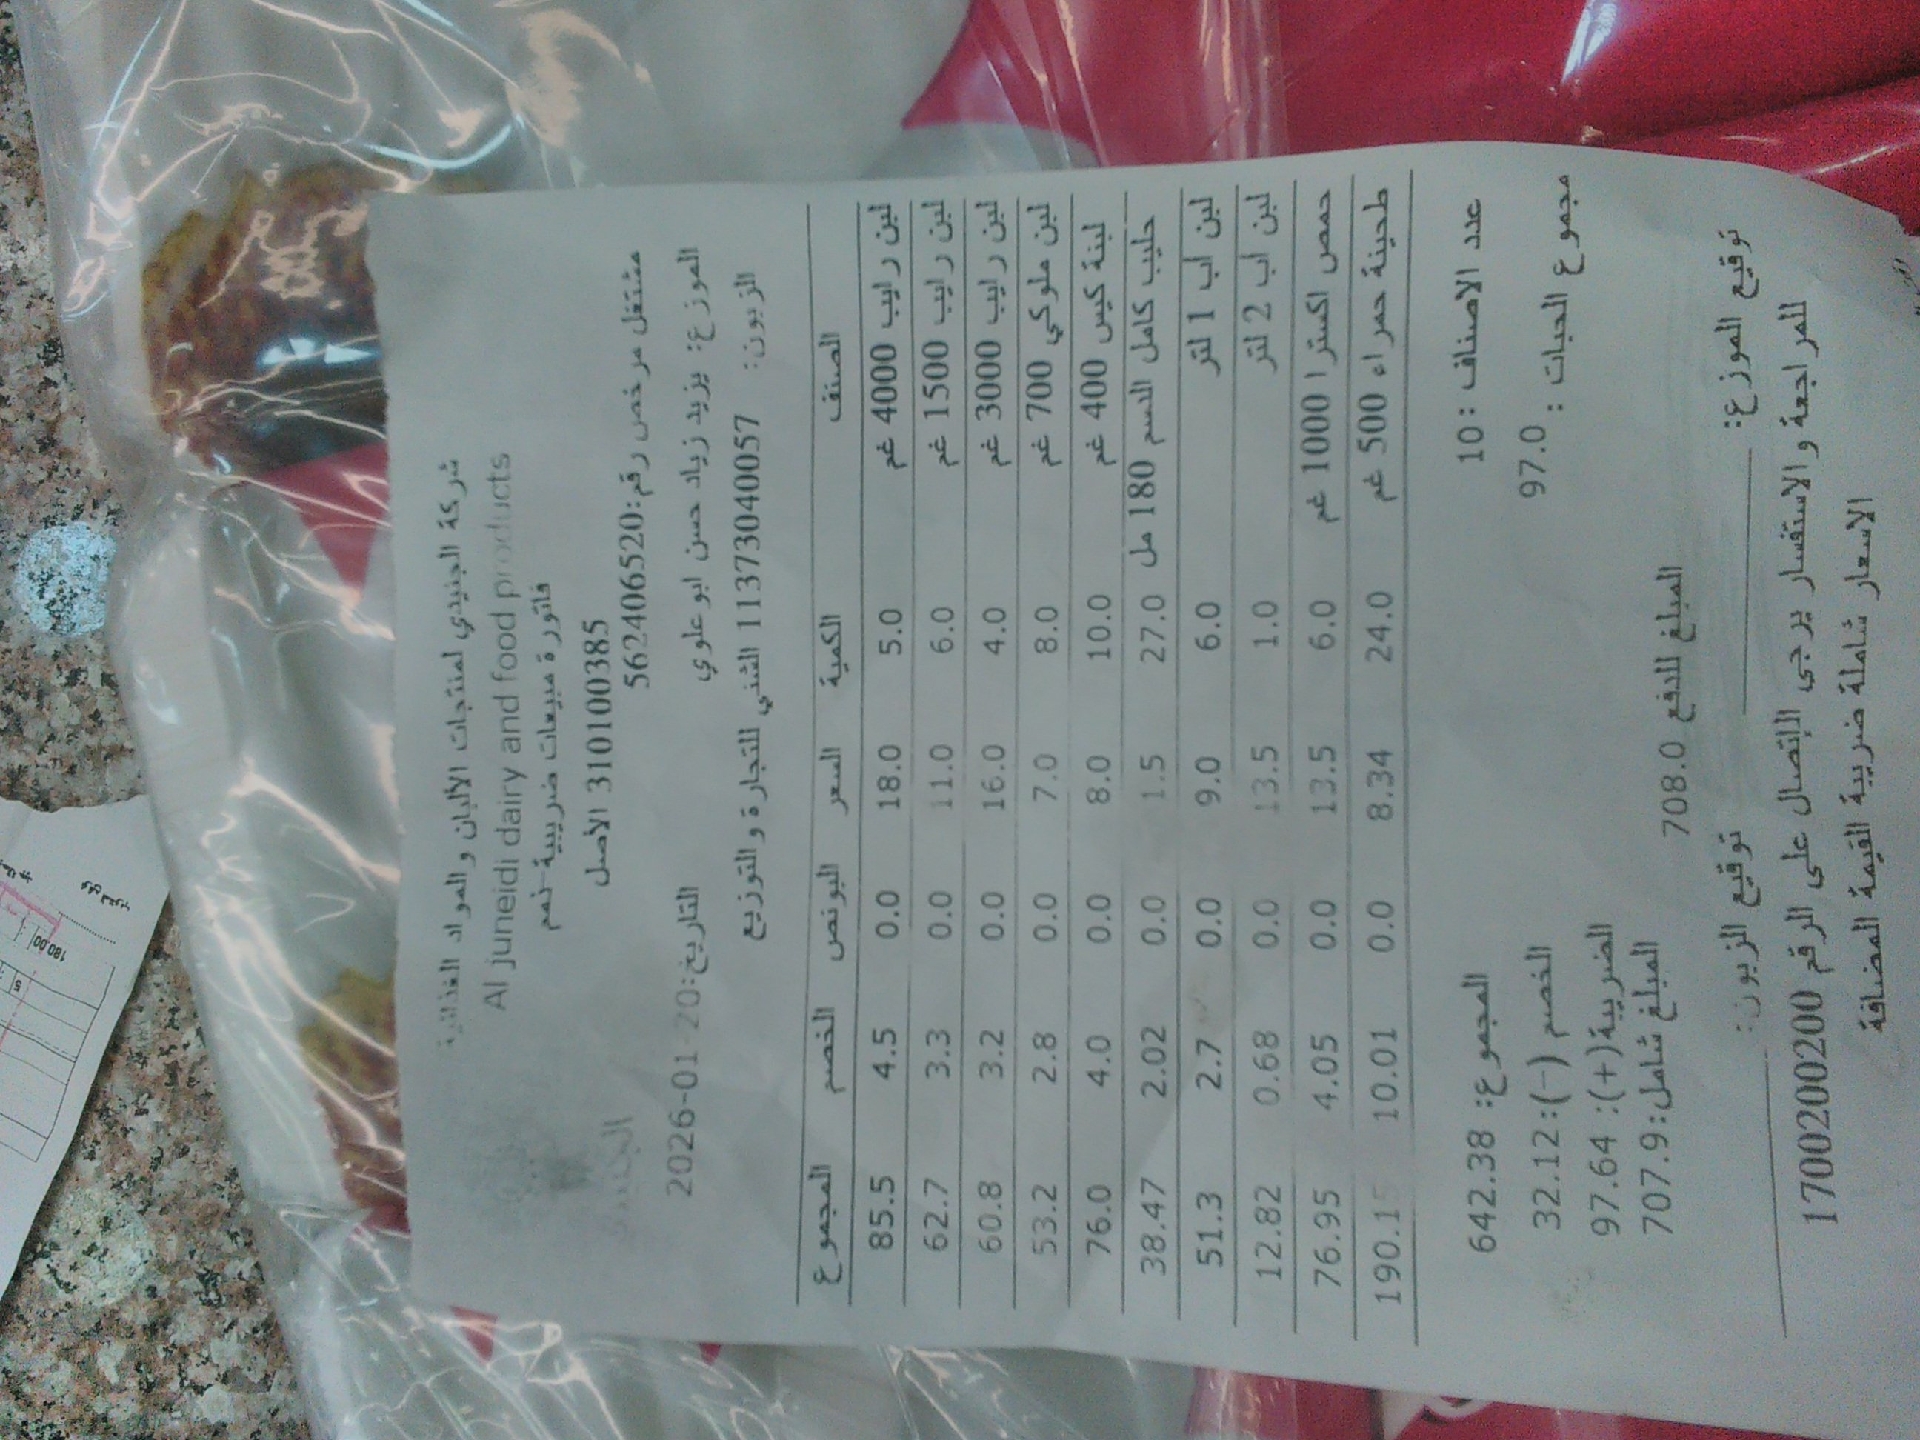 شركة الجنيدي لمنتجات الألبان والمواد الغذائية
Al juneidi dairy and food products
فاتورة مبيعات ضريبية-نعم
310100385 الأصل
مشتغل مرخص رقم:562406520
الموزع: يزيد زياد حسن ابو علوي
التاريخ:20-01-2026
الزبون: 113730400057 الشني للتجارة والتوزيع
الصنف الكمية السعر البونص الخصم المجموع
لبن رايب 4000 غم 5.0 18.0 0.0 4.5 85.5
لبن رايب 1500 غم 6.0 11.0 0.0 3.3 62.7
لبن رايب 3000 غم 4.0 16.0 0.0 3.2 60.8
لبن ملوكي 700 غم 8.0 7.0 0.0 2.8 53.2
لبنة كيس 400 غم 10.0 8.0 0.0 4.0 76.0
حليب كامل الدسم 180 مل 27.0 1.5 0.0 2.02 38.47
لبن اب 1 لتر 6.0 9.0 0.0 2.7 51.3
لبن اب 2 لتر 1.0 13.5 0.0 0.68 12.82
حمص اكسترا 1000 غم 6.0 13.5 0.0 4.05 76.95
طحينة حمراء 500 غم 24.0 8.34 0.0 10.01 190.15
عدد الاصناف : 10 المجموع: 642.38
مجموع الحبات : 97.0 الخصم (-):32.12
الضريبة(+): 97.64
المبلغ شامل:707.9
المبلغ للدفع 708.0
توقيع الموزع: توقيع الزبون:
للمراجعة والاستفسار يرجى الإتصال على الرقم 1700200200
الاسعار شاملة ضريبة القيمة المضافة
180.00